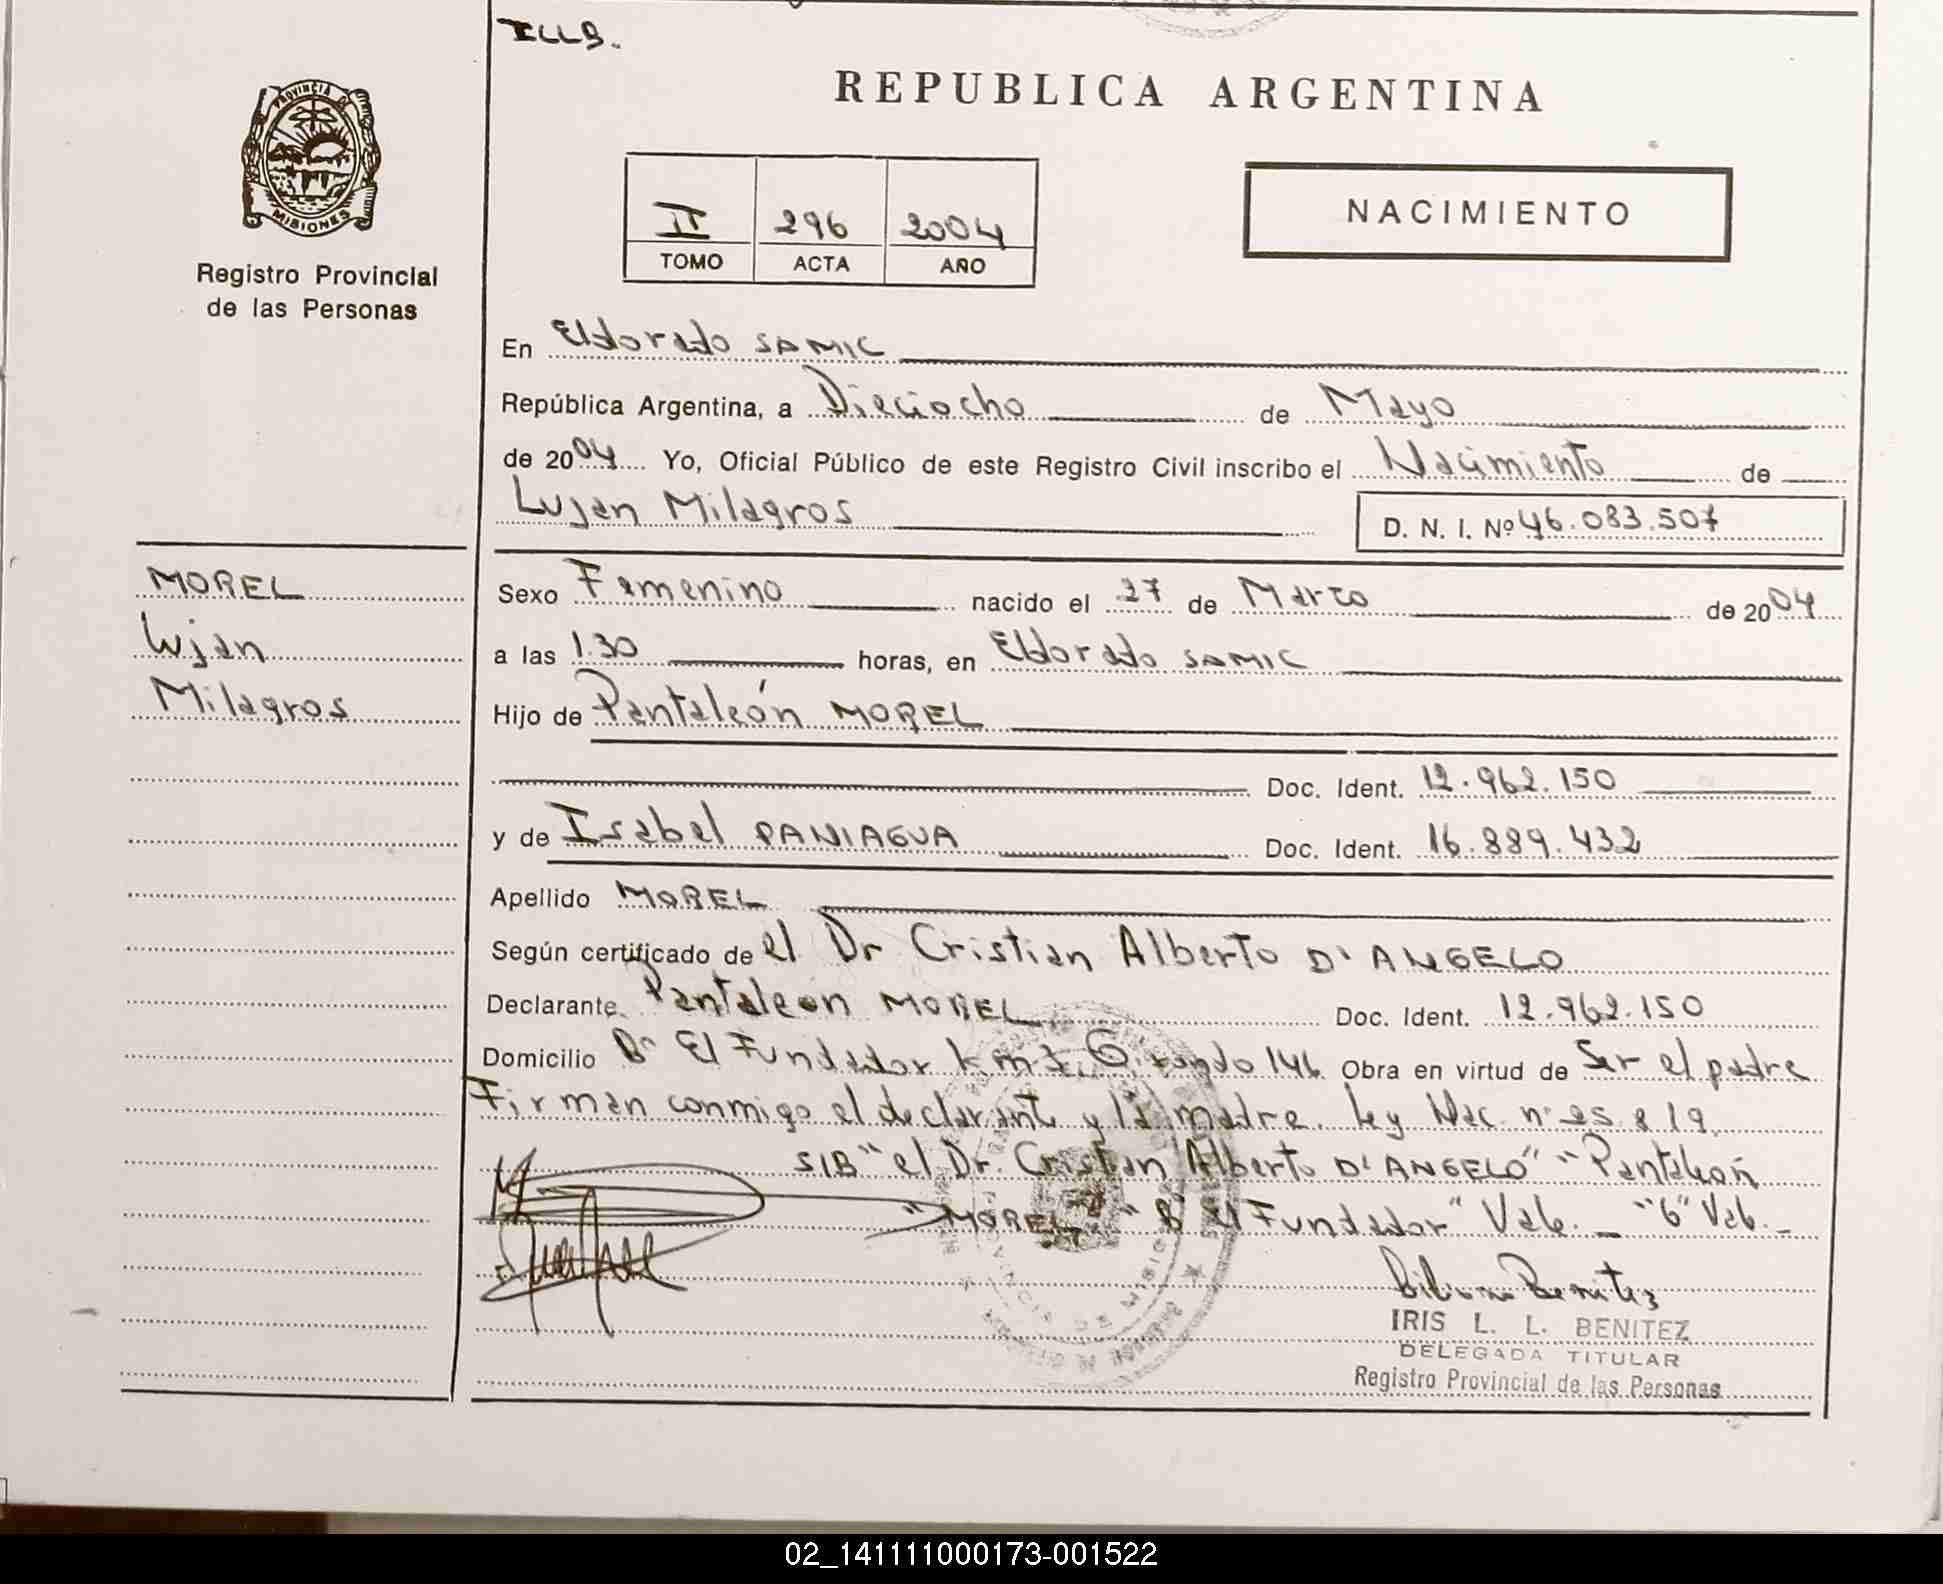 ILLB.
PROVINCIA DE
MISIONES
Registro Provincial
de las Personas
REPUBLICA ARGENTINA
II 296 2004
TOMO ACTA AÑO
NACIMIENTO
En Eldorado SAMIC
República Argentina, a Dieciocho de Mayo
de 2004 Yo, Oficial Público de este Registro Civil inscribo el Nacimiento de
Lujan Milagros D. N. I. Nº 46.083.507
MOREL
Lujan
Milagros
Sexo Femenino nacido el 27 de Marzo de 2004
a las 1.30 horas, en Eldorado SAMIC
Hijo de Pantaleón MOREL
Doc. Ident. 12.962.150
y de Isabel PANIAGUA Doc. Ident. 16.889.432
Apellido MOREL
Según certificado de el Dr Cristian Alberto D'ANGELO
Declarante Pantaleon MOREL Doc. Ident. 12.962.150
Domicilio Bº El Fundador km 146 Obra en virtud de Ser el padre
Firman conmigo el declarante y la madre. Ley Nac. nº 25.819.
S/B "el Dr. Cristian Alberto D'ANGELO" "Pantaleón
MOREL" "Bº El Fundador" Vale. _ "6" Vale. _
Benitez
IRIS L. L. BENITEZ
DELEGADA TITULAR
Registro Provincial de las Personas
02_141111000173-001522